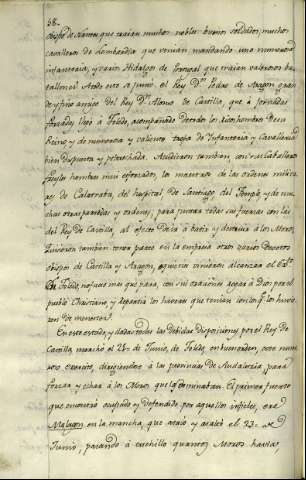 68.
obispo de Nantes que traian muchos nobles buenos soldados, muchos
cavalleros de Lombardia que venian mandando una numerosa
infanteria, y varios Hidalgos de Portugal que traian valerosos ba-
tallones. A todo esto se junto el Rey Dn. Pedro de Aragon gran-
de y fino amigo del Rey Dn. Alonso de Castilla, que a jornadas
forzadas llegó a Toledo, acompañado de todos los ricoshombres de su
Reyno y de numerosa y valiente tropa de Infanteria y Cavalleria
bien dispuesta y pertrechada. Acudieron tambien, con sus Cavalleros
freyles hombres muy esforzados, los maestros de las ordenes milita-
res de Calatrava, del hospital, de Santiago, del Temple, y de mu-
chas otras partidas y ordenes, para juntar todas sus fuerzas con las
del Rey de Castilla, al efecto de ir a batir y destruir a los Moros.
Quisieron tambien tener parte en la empresa otros varios
obispos de Castilla y Aragon, quienes vinieron
Toledo, no fuese mas que para, con sus oraciones rogar a Dios por el
pueblo Christiano y repartir los haveres que tenian los que los hu-
vieren de menester.
En este estado, y dadas todas las debidas disposiciones por el Rey de
Castilla marchó el 21 de Junio, de Toledo, este nume-
roso exercito, dirigiendose á las provincias de Andalucia para
buscar y echar á los Moros que las dominaban. El primer puesto
que encontró ocupado y defendido por aquellos infieles, era
Malagon en la mancha, que atacó y asaltó el 23 de
Junio, pasando á cuchillo quantos Moros havia,